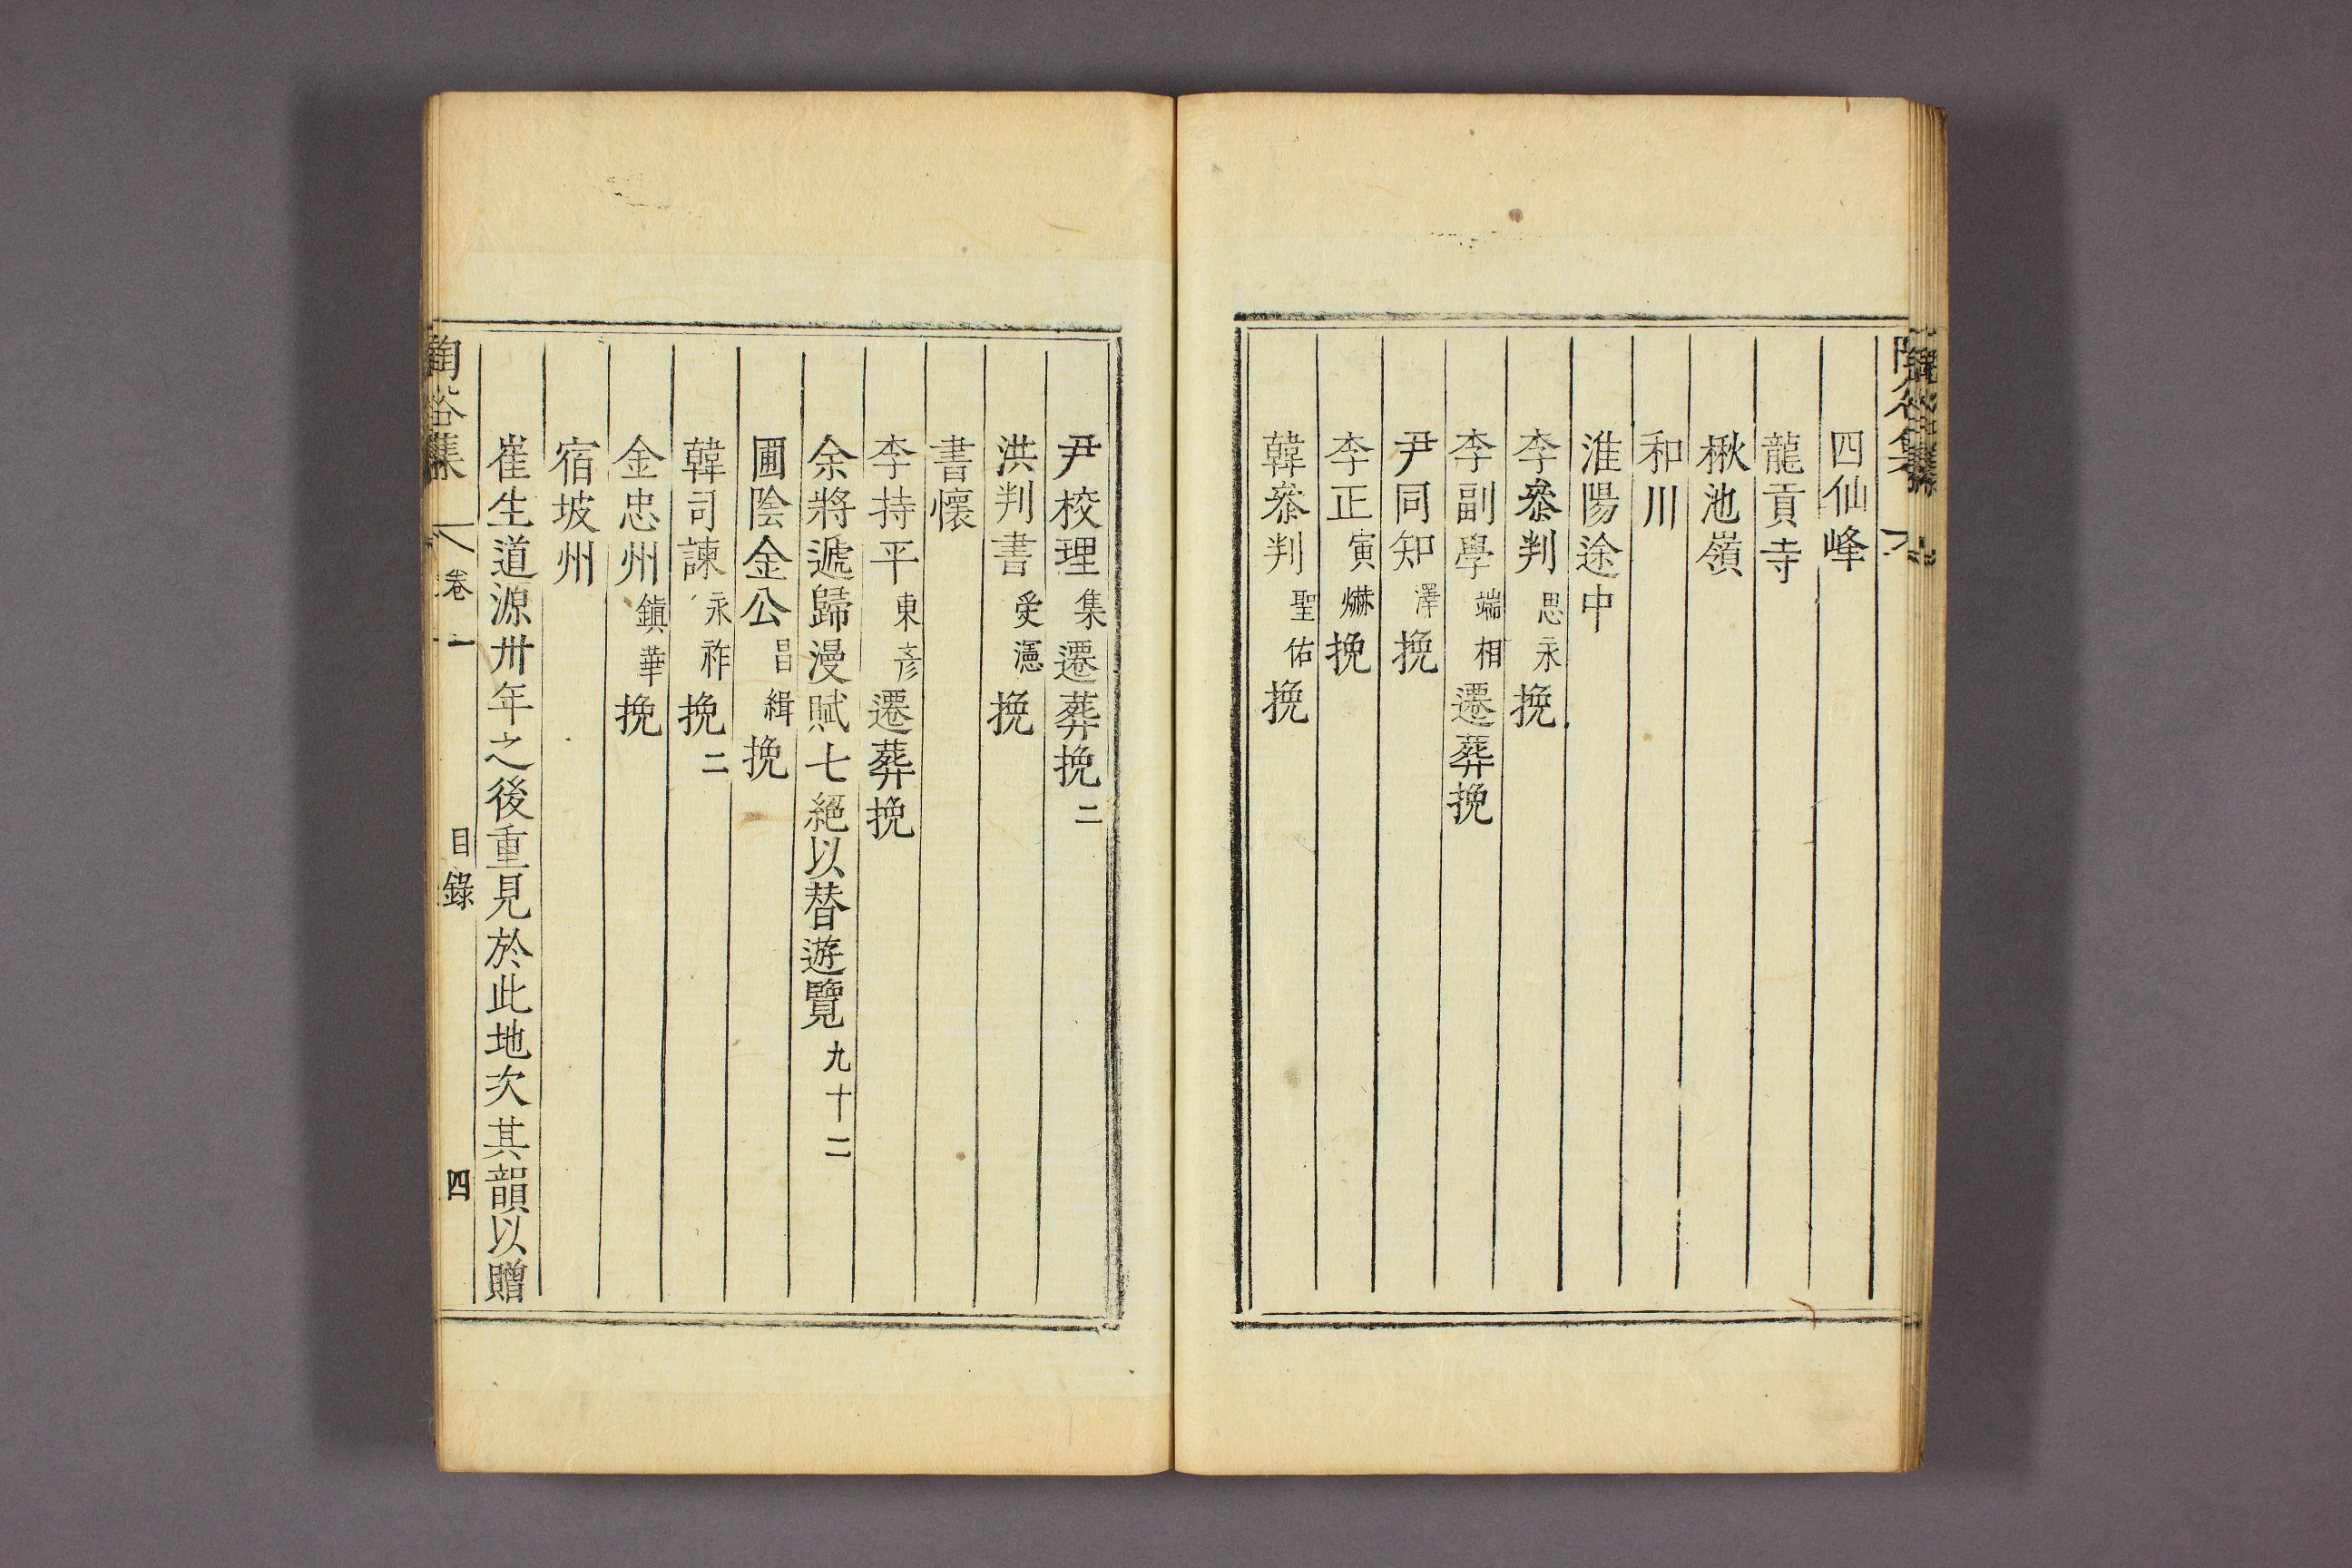 四仙峰
龍貢寺
楸池嶺
和川
淮陽途中
李叅判思永挽
李副學端相遷葬挽
尹同知澤挽
李正寅爀挽
韓叅判聖佑挽
尹校理集遷葬挽二
洪判書受瀗挽
書懷
李持平東彦遷葬挽
余將遞歸漫賦七絕以替遊覽九十二
圃陰金公昌緝挽
韓司諫永祚挽二
金忠州鎮華挽
宿坡州
崔生道源卅年之後重見於此地次其韻以贈
陶谷集 卷一 目錄 四